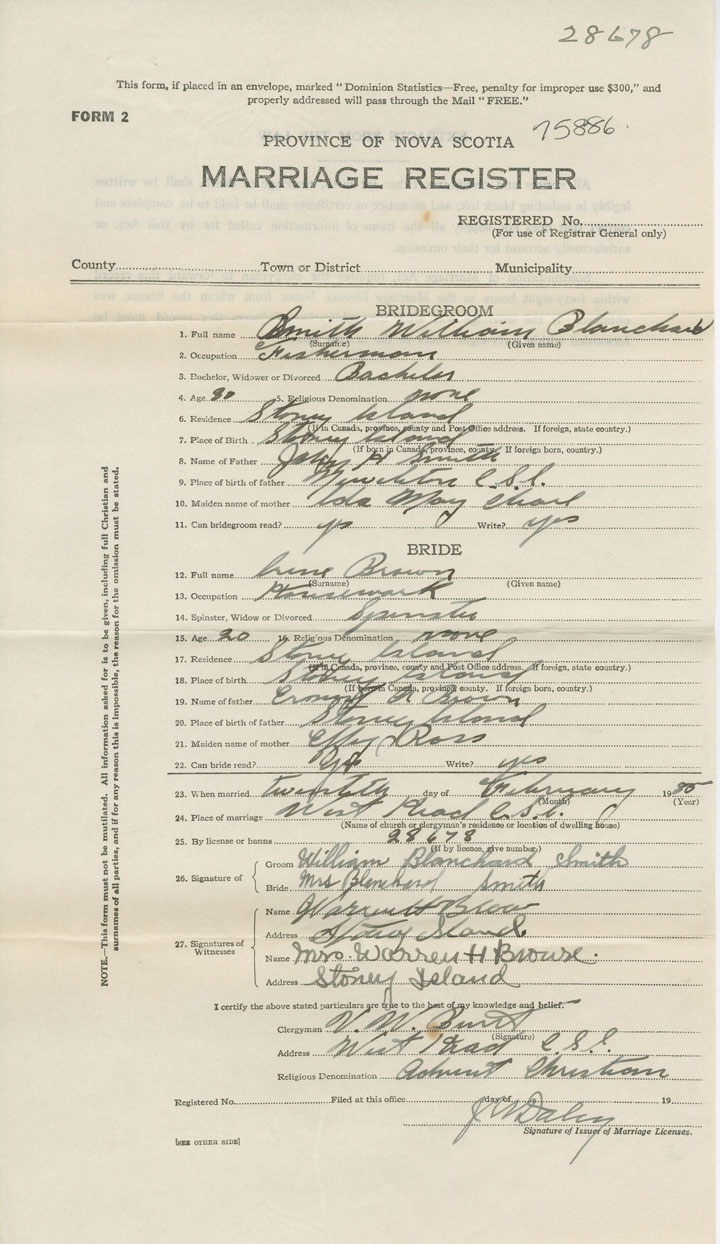 28678
This form, if placed in an envelope, marked "Dominion Statistics—Free, penalty for improper use $300," and
properly addressed will pass through the Mail "FREE."
FORM 2
75886
PROVINCE OF NOVA SCOTIA
MARRIAGE REGISTER
REGISTERED No.
(For use of Registrar General only)
County Town or District Municipality
BRIDEGROOM
1. Full name Smith William Blanchard
(Surname) (Given name)
2. Occupation Fisherman
3. Bachelor, Widower or Divorced Bachelor
4. Age 30 5. Religious Denomination none
6. Residence Stoney Island
(If in Canada, province, county and Post Office address. If foreign, state country.)
7. Place of Birth Stoney Island
(If born in Canada, province, county. If foreign born, country.)
8. Name of Father John H Smith
9. Place of birth of father Newelton C.S.I.
10. Maiden name of mother Ida May
11. Can bridegroom read? yes Write? yes
BRIDE
12. Full name Irene Brown
(Surname) (Given name)
13. Occupation Housework
14. Spinster, Widow or Divorced Spinster
15. Age 20 16. Religious Denomination none
17. Residence Stoney Island
(If in Canada, province, county and Post Office address. If foreign, state country.)
18. Place of birth Stoney Island
(If born in Canada, province, county. If foreign born, country.)
19. Name of father Brown
20. Place of birth of father Stoney Island
21. Maiden name of mother Effy Ross
22. Can bride read? yes Write? yes
23. When married twentieth day of February 1935
(Month) (Year)
24. Place of marriage West Head C.S.I.
(Name of church or clergyman's residence or location of dwelling house)
25. By license or banns 28678
(If by licence, give number)
26. Signature of
Groom William Blanchard Smith
Bride Mrs Blanchard Smith
27. Signatures of Witnesses
Name Warren H
Address Stoney Island
Name Mrs. Warren H
Address Stoney Island
I certify the above stated particulars are true to the best of my knowledge and belief.
Clergyman V. W. Burt
(Signature)
Address West Head C.S.I.
Religious Denomination Advent Christian
Registered No. Filed at this office day of 19
Signature of Issuer of Marriage Licenses.
[SEE OTHER SIDE]
NOTE.—This form must not be mutilated. All information asked for is to be given, including full Christian and
surnames of all parties, and if for any reason this is impossible, the reason for the omission must be stated.